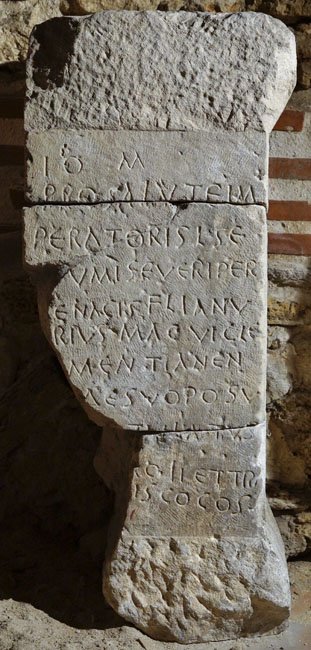 I O M
PRO SALVTE IM
PERATORIS L SE
VMI SEVERI PER
ENACIS F L IANV
RIVS MAG VI CLE
MENTIANEN
ESVO POSV

ISCO COS